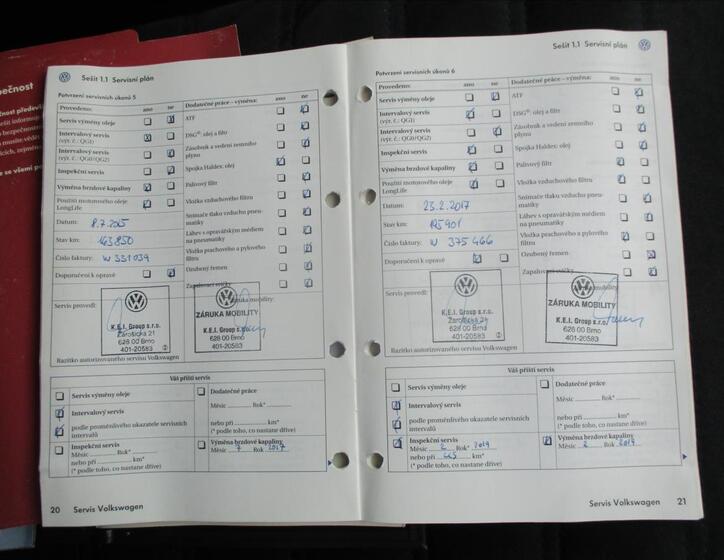 pečnost
Sešit 1.1 Servisní plán
Potvrzení servisních úkonů 5
Provedeno: ano ne
Servis výměny oleje
Intervalový servis
(výr. č.: QG1)
Intervalový servis
(výr. č.: QG0/QG2)
Inspekční servis
Výměna brzdové kapaliny
Použití motorového oleje
LongLife
Datum: 8.7.2015
Stav km: 163 850
Číslo faktury: W 331034
Doporučení k opravě
Dodatečné práce – výměna: ano ne
ATF
DSG®: olej a filtr
Zásobník a vedení zemního
plynu
Spojka Haldex: olej
Palivový filtr
Vložka vzduchového filtru
Snímače tlaku vzduchu pneu-
matiky
Láhev s opravářským médiem
na pneumatiky
Vložka prachového a pylového
filtru
Ozubený řemen
Zapalovací svíčky
Servis provedl:
K.E.I. Group s.r.o.
Zarošická 21
628 00 Brno
401-20583
Záruka mobility:
ZÁRUKA MOBILITY
K.E.I. Group s.r.o.
628 00 Brno
401-20583
Razítko autorizovaného servisu Volkswagen
Váš příští servis
Servis výměny oleje
Intervalový servis
podle proměnlivého ukazatele servisních
intervalů
Inspekční servis
Měsíc Rok*
nebo při km*
(* podle toho, co nastane dříve)
Dodatečné práce
Měsíc Rok*
nebo při km*
(* podle toho, co nastane dříve)
Výměna brzdové kapaliny
Měsíc 7 Rok 2017
20 Servis Volkswagen
Sešit 1.1 Servisní plán
Potvrzení servisních úkonů 6
Provedeno: ano ne
Servis výměny oleje
Intervalový servis
(výr. č.: QG1)
Intervalový servis
(výr. č.: QG0/QG2)
Inspekční servis
Výměna brzdové kapaliny
Použití motorového oleje
LongLife
Datum: 23.2.2017
Stav km:
Číslo faktury: W 375466
Doporučení k opravě
Dodatečné práce – výměna: ano ne
ATF
DSG®: olej a filtr
Zásobník a vedení zemního
plynu
Spojka Haldex: olej
Palivový filtr
Vložka vzduchového filtru
Snímače tlaku vzduchu pneu-
matiky
Láhev s opravářským médiem
na pneumatiky
Vložka prachového a pylového
filtru
Ozubený řemen
Zapalovací svíčky
Servis provedl:
K.E.I. Group s.r.o.
Zarošická 21
628 00 Brno
401-20583
ZÁRUKA MOBILITY
K.E.I. Group s.r.o.
628 00 Brno
401-20583
Razítko autorizovaného servisu Volkswagen
Váš příští servis
Servis výměny oleje
Intervalový servis
podle proměnlivého ukazatele servisních
intervalů
Inspekční servis
Měsíc 2 Rok* 2019
nebo při km*
(* podle toho, co nastane dříve)
Dodatečné práce
Měsíc Rok*
nebo při km*
(* podle toho, co nastane dříve)
Výměna brzdové kapaliny
Měsíc 2 Rok 2019
Servis Volkswagen 21